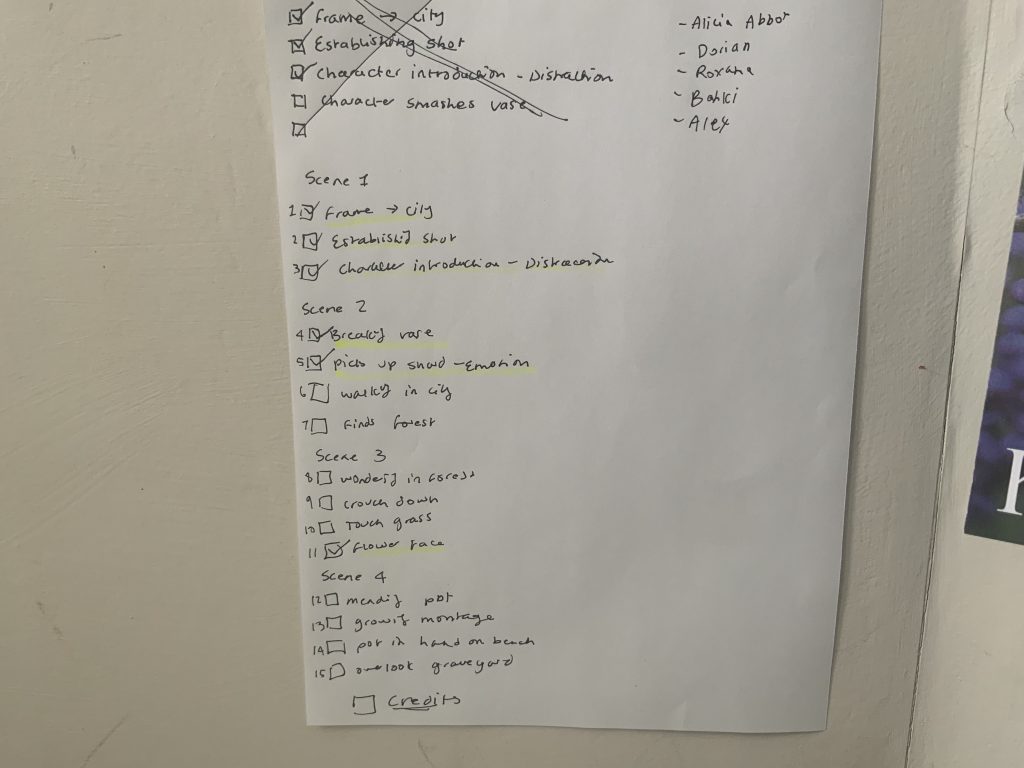 Frame → city
Establishing shot
Character introduction - Distraction
Character smashes vase
- Alicia Abbot
- Dorian
- Roxana
- Alex
Scene 1
1 Frame → city
2 Establishing shot
3 Character introduction - Distraction
Scene 2
4 Breaking vase
5 pick up shard - Emotion
6 walking in city
7 Finds forest
Scene 3
8 wondering in forest
9 crouch down
10 Touch grass
11 Flower face
Scene 4
12 mending pot
13 growing montage
14 pot in hand on beach
15 overlook graveyard
Credits